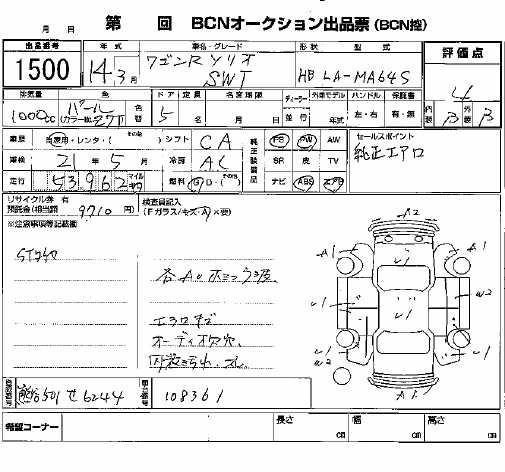 第 回 BCNオークション出品票(BCN控)
月 日
出品番号 年式 車名・グレード 形状 型式 評価点
1500 14年3月 ワゴンRソリオ SWT HB LA-MA64S 4
排気量 色 色替 ドア 定員 名変期限 ディーラー 外車モデル ハンドル 保証書
1000cc パール (カラーNo.Z7T) 5 月 日 並行 年式 左・右 有・無 内装 B 外装 B
車歴 自家用・レンタ・(その他) シフト CA 純正装備品 PS PW AW セールスポイント
車検 21年5月 冷房 AC SR 皮 TV 純正エアロ
走行 53,962 マイル キロ 燃料 G D (その他) ナビ ABS エアB
リサイクル券 有 預託金(相当額) 9710円 検査員記入 (Fガラス/キズ・A/×要)
※注意事項等記載欄
各Aホミ
エアロキズ
オーディオ欠穴
内装汚れ
A2
A1 A1
U1 U1 W2
U1 U1
W2
登録番号 熊谷501せ6244 車台番号 108361
希望コーナー 長さ cm 幅 cm 高さ cm